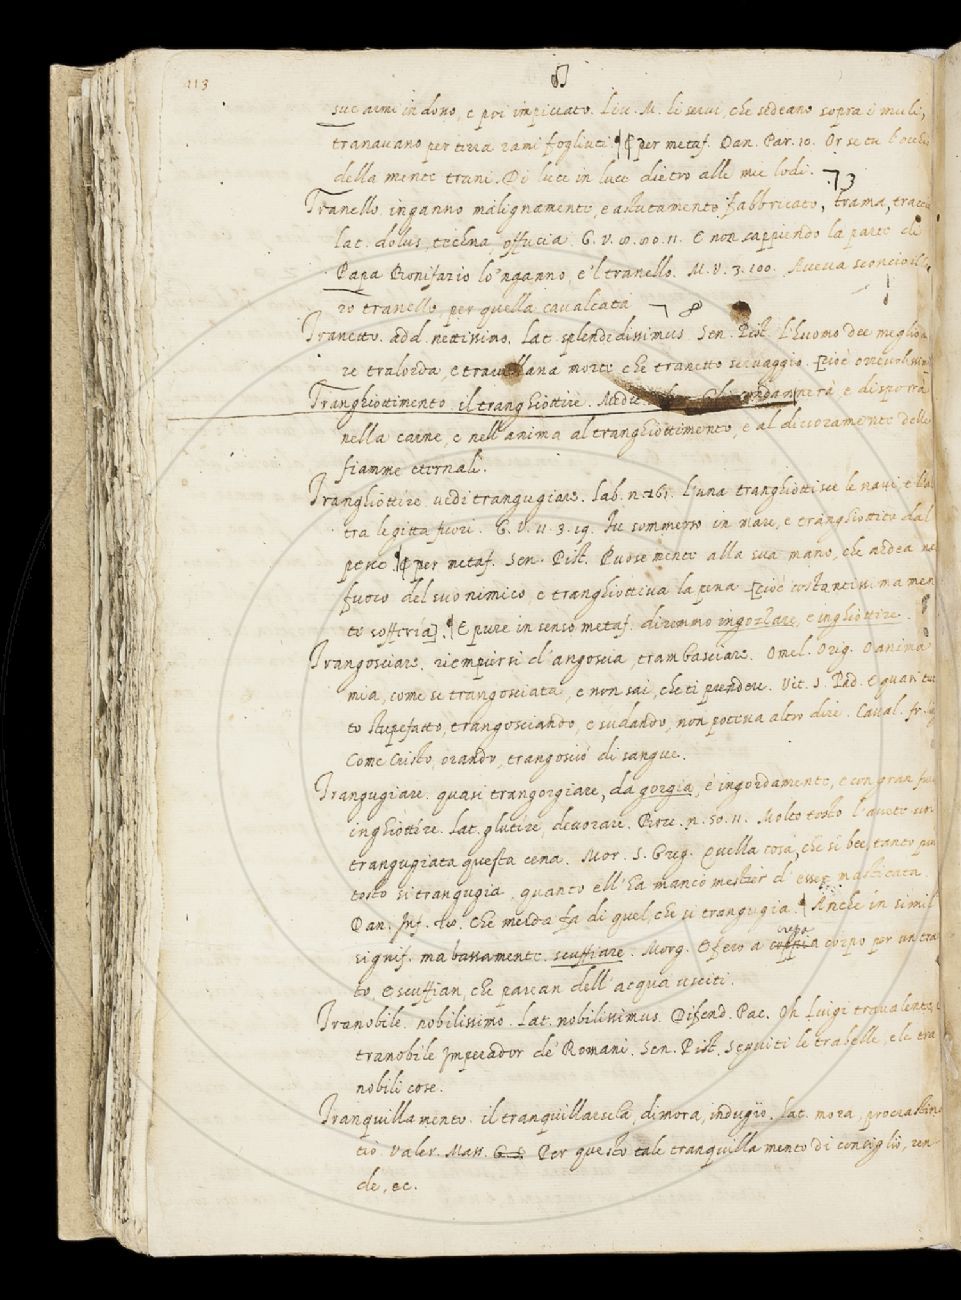 113
sue armi in dono, e poi impiccato. Liv. M. li servi, che sedeano sopra i muli,
tranavano per terra rami fogliuti. ¶ per metaf. Dan. Par. 10. Or se tu l'occhio
della mente trani. Di luce in luce dietro alle mie lodi. 73
Tranello. inganno malignamente, e astutamente fabbricato, trama,
lat. dolus, techna offucia. G. V. 11. E non sappiendo la parte di
Papa Bonifazio lo 'nganno, e 'l tranello. M. V. 3. 100. Aveva
ro tranello, per quella cavalcata 78
Tranetto. add. nettissimo. Lat. splendidissimus. Sen. Pist. L'huomo dee
re tralorda, e morto che tranetto selvaggio. [cioè
Tranghiottimento. il tranghiottire. nerà e disporrà
nella carne, e nell'anima al tranghiottimento, e al divoramento delle
fiamme eternali.
Tranghiottire. vedi trangugiare. Lab. n. 261. L'una tranghiottisce le navi, e l'al
tra le gitta fuori. G. V. 11. 3. 19. Fu sommerso in mare, e tranghiottito dal
pesce ¶ per metaf. Sen. Pist. Puose mente alla sua mano, che ardea nel
fuoco del suo nimico, e tranghiottiva la pena [cioè costantissimamen
te sofferia]. ¶ E pure in senso metaf. diremmo ingozzare, e inghiottire.
Trangosciare. riempiersi d'angoscia, trambasciare. Omel. Orig. O anima
mia, come se trangosciata, e non sai, che ti prendere. Vit. S. Pad. E quasi tut
to stupefatto, trangosciando, e sudando, non poteva altro dire. Caval. fr.
Come Cristo, orando, trangosciò di sangue.
Trangugiare. quasi trangorgiare, da gorgia, è ingordamente, e con gran
inghiottire. Lat. glutire, devorare. Bocc. n. 50. 11. Molto tosto l'avete voi
trangugiata questa cena. Mor. S. Greg. Quella cosa, che si bee, tanto più
tosto si trangugia, quanto ell'ha manco mestier d'esser masticata.
Dan. Inf. Che merda fa di quel, che si trangugia. ¶ Anche in simil
signif. ma bassamente. scuffiare. Morg. E fero a crepa corpo per un trat
to, E scuffian, che parean dell'acqua usciti.
Tranobile. nobilissimo. Lat. nobilissimus. Difend. Pac. Oh Luigi
tranobile Imperador de' Romani. Sen. Pist. Seguiti le trabelle, e le tra
nobili cose.
Tranquillamento. il tranquillarsela, dimora, indugio. Lat. mora, procrastina
tio. Valer. Mass. Per questo tale tranquillamento di consiglio, ren
de, ec.